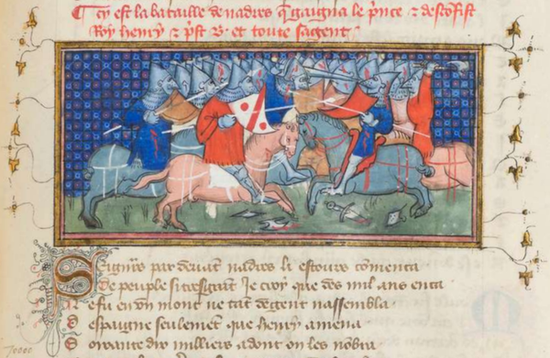 Cy est la bataille de nadres q̄ gaigna le p̄nce ⁊ descōfist
Roy henry ⁊ p̄st B. et toute sa gent
Seignurs par devant nadres li estours comenca
de peuple si resgart Je croy que des mil ans en ca
Ne fu en un mont ne tāt de gent nassembla
D espaigne seulement que henry amena
S oixante dix milliers adont on les nōbra